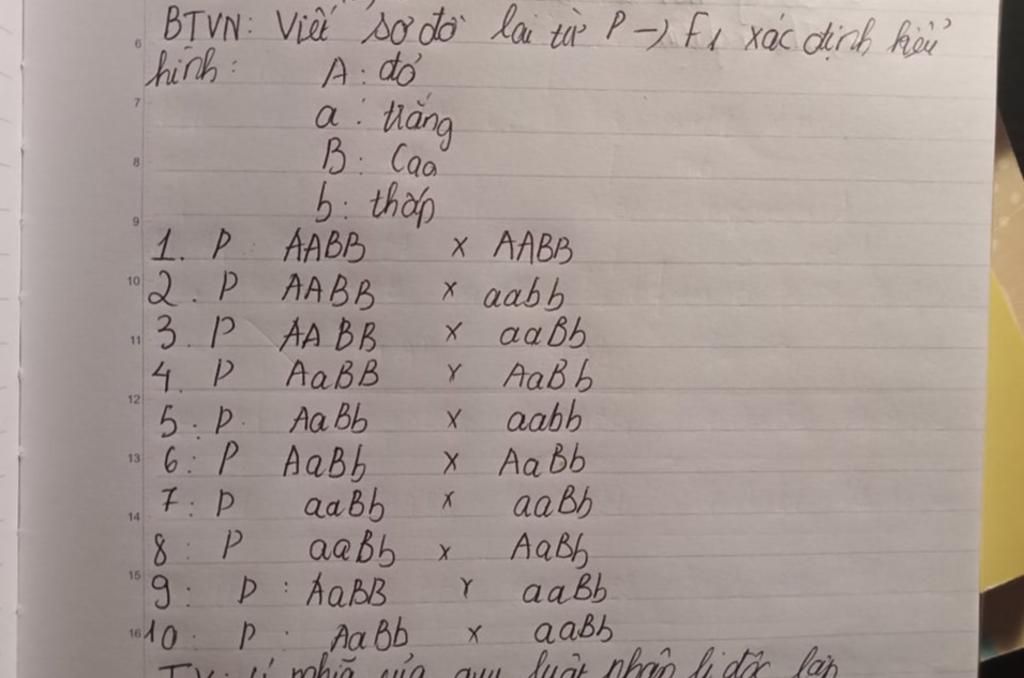 BTVN: Viết sơ đồ lai từ P → F1 xác định kiểu
hình: A: đỏ
a: trắng
B: Cao
b: thấp
1. P: AABB x AABB
2. P AABB x aabb
3. P AABB x aaBb
4. P AaBB x AaBb
5: P. AaBb x aabb
6: P AaBb x AaBb
7: P aaBb x aaBb
8: P aaBb x AaBb
9: P: AaBB x aaBb
10: P: AaBb x aaBb
nghĩa của quy luật phân li độc lập
6
7
8
9
10
11
12
13
14
15
16